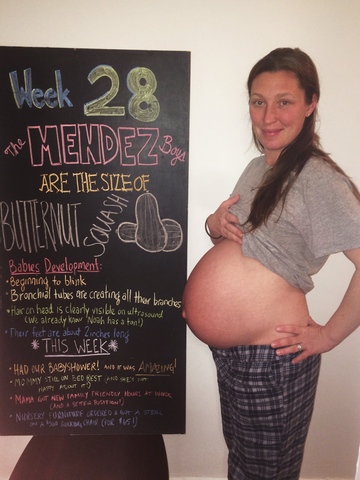 Week 28
The MENDEZ Boys
ARE THE SIZE OF
BUTTERNUT SQUASH
Babies Development:
• Beginning to blink
• Bronchial tubes are creating all their branches
• Hair on head is clearly visible on ultrasound
(we already know Noah has a ton!)
• Their feet are about 2 inches long
*THIS WEEK*
• HAD OUR BABYSHOWER! AND IT WAS AMAZING!
• MOMMY STILL ON BED REST (AND SHE'S NOT
HAPPY ABOUT IT)
• MAMA GOT NEW FAMILY FRIENDLY HOURS AT WORK
(AND A
• NURSERY FURNITURE ORDERED & GOT A STEAL
ON A CHAIR (FOR $65!)